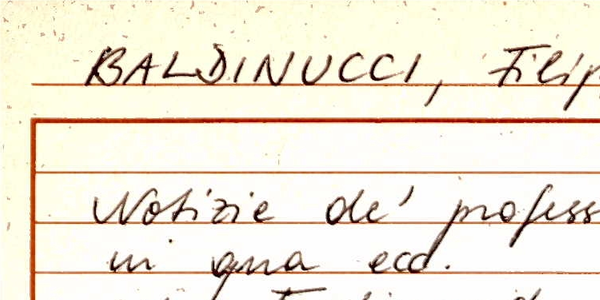 BALDINUCCI, Filip
Notizie de' profess
in qua ecc.